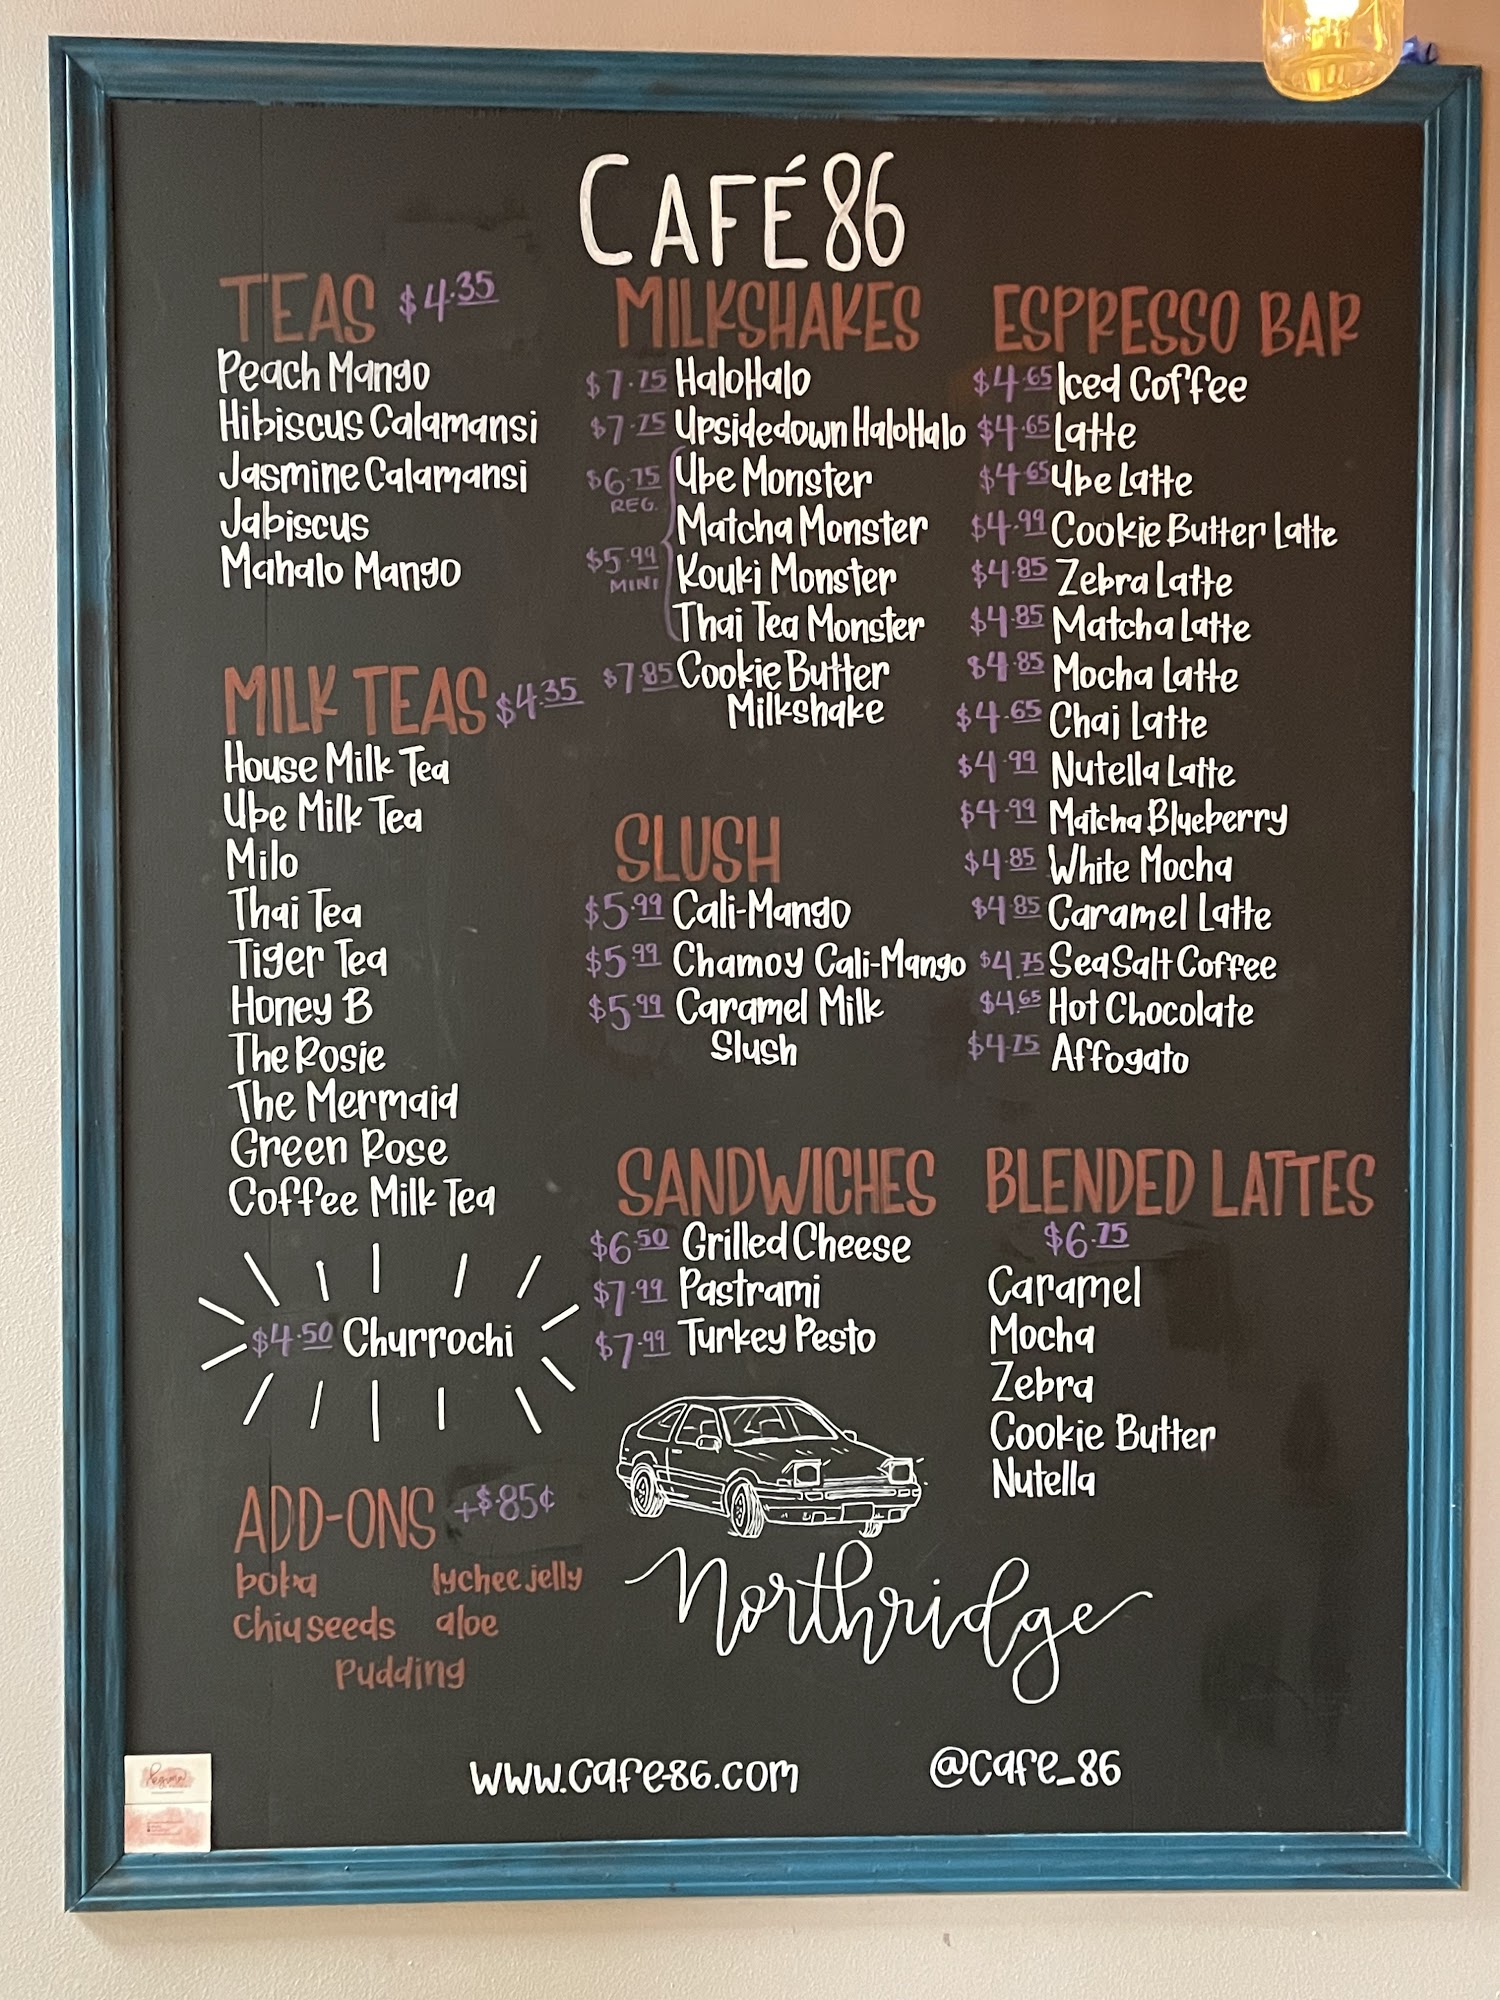 CAFÉ 86
TEAS $4.35
Peach Mango
Hibiscus Calamansi
Jasmine Calamansi
Jabiscus
Mahalo Mango
MILK TEAS $4.35
House Milk Tea
Ube Milk Tea
Milo
Thai Tea
Tiger Tea
Honey B
The Rosie
The Mermaid
Green Rose
Coffee Milk Tea
$4.50 Churrochi
ADD-ONS +$.85¢
boba lychee jelly
chia seeds aloe
Pudding
MILKSHAKES
$7.75 HaloHalo
$7.75 Upsidedown HaloHalo
$6.75 REG.
$5.99 MINI
Ube Monster
Matcha Monster
Kouki Monster
Thai Tea Monster
$7.85 Cookie Butter
Milkshake
SLUSH
$5.99 Cali-Mango
$5.99 Chamoy Cali-Mango
$5.99 Caramel Milk
Slush
SANDWICHES
$6.50 Grilled Cheese
$7.99 Pastrami
$7.99 Turkey Pesto
ESPRESSO BAR
$4.65 Iced Coffee
$4.65 Latte
$4.65 Ube Latte
$4.99 Cookie Butter Latte
$4.85 Zebra Latte
$4.85 Matcha Latte
$4.85 Mocha Latte
$4.65 Chai Latte
$4.99 Nutella Latte
$4.99 Matcha Blueberry
$4.85 White Mocha
$4.85 Caramel Latte
$4.75 SeaSalt Coffee
$4.65 Hot Chocolate
$4.75 Affogato
BLENDED LATTES
$6.75
Caramel
Mocha
Zebra
Cookie Butter
Nutella
Northridge
www.cafe-86.com @cafe_86